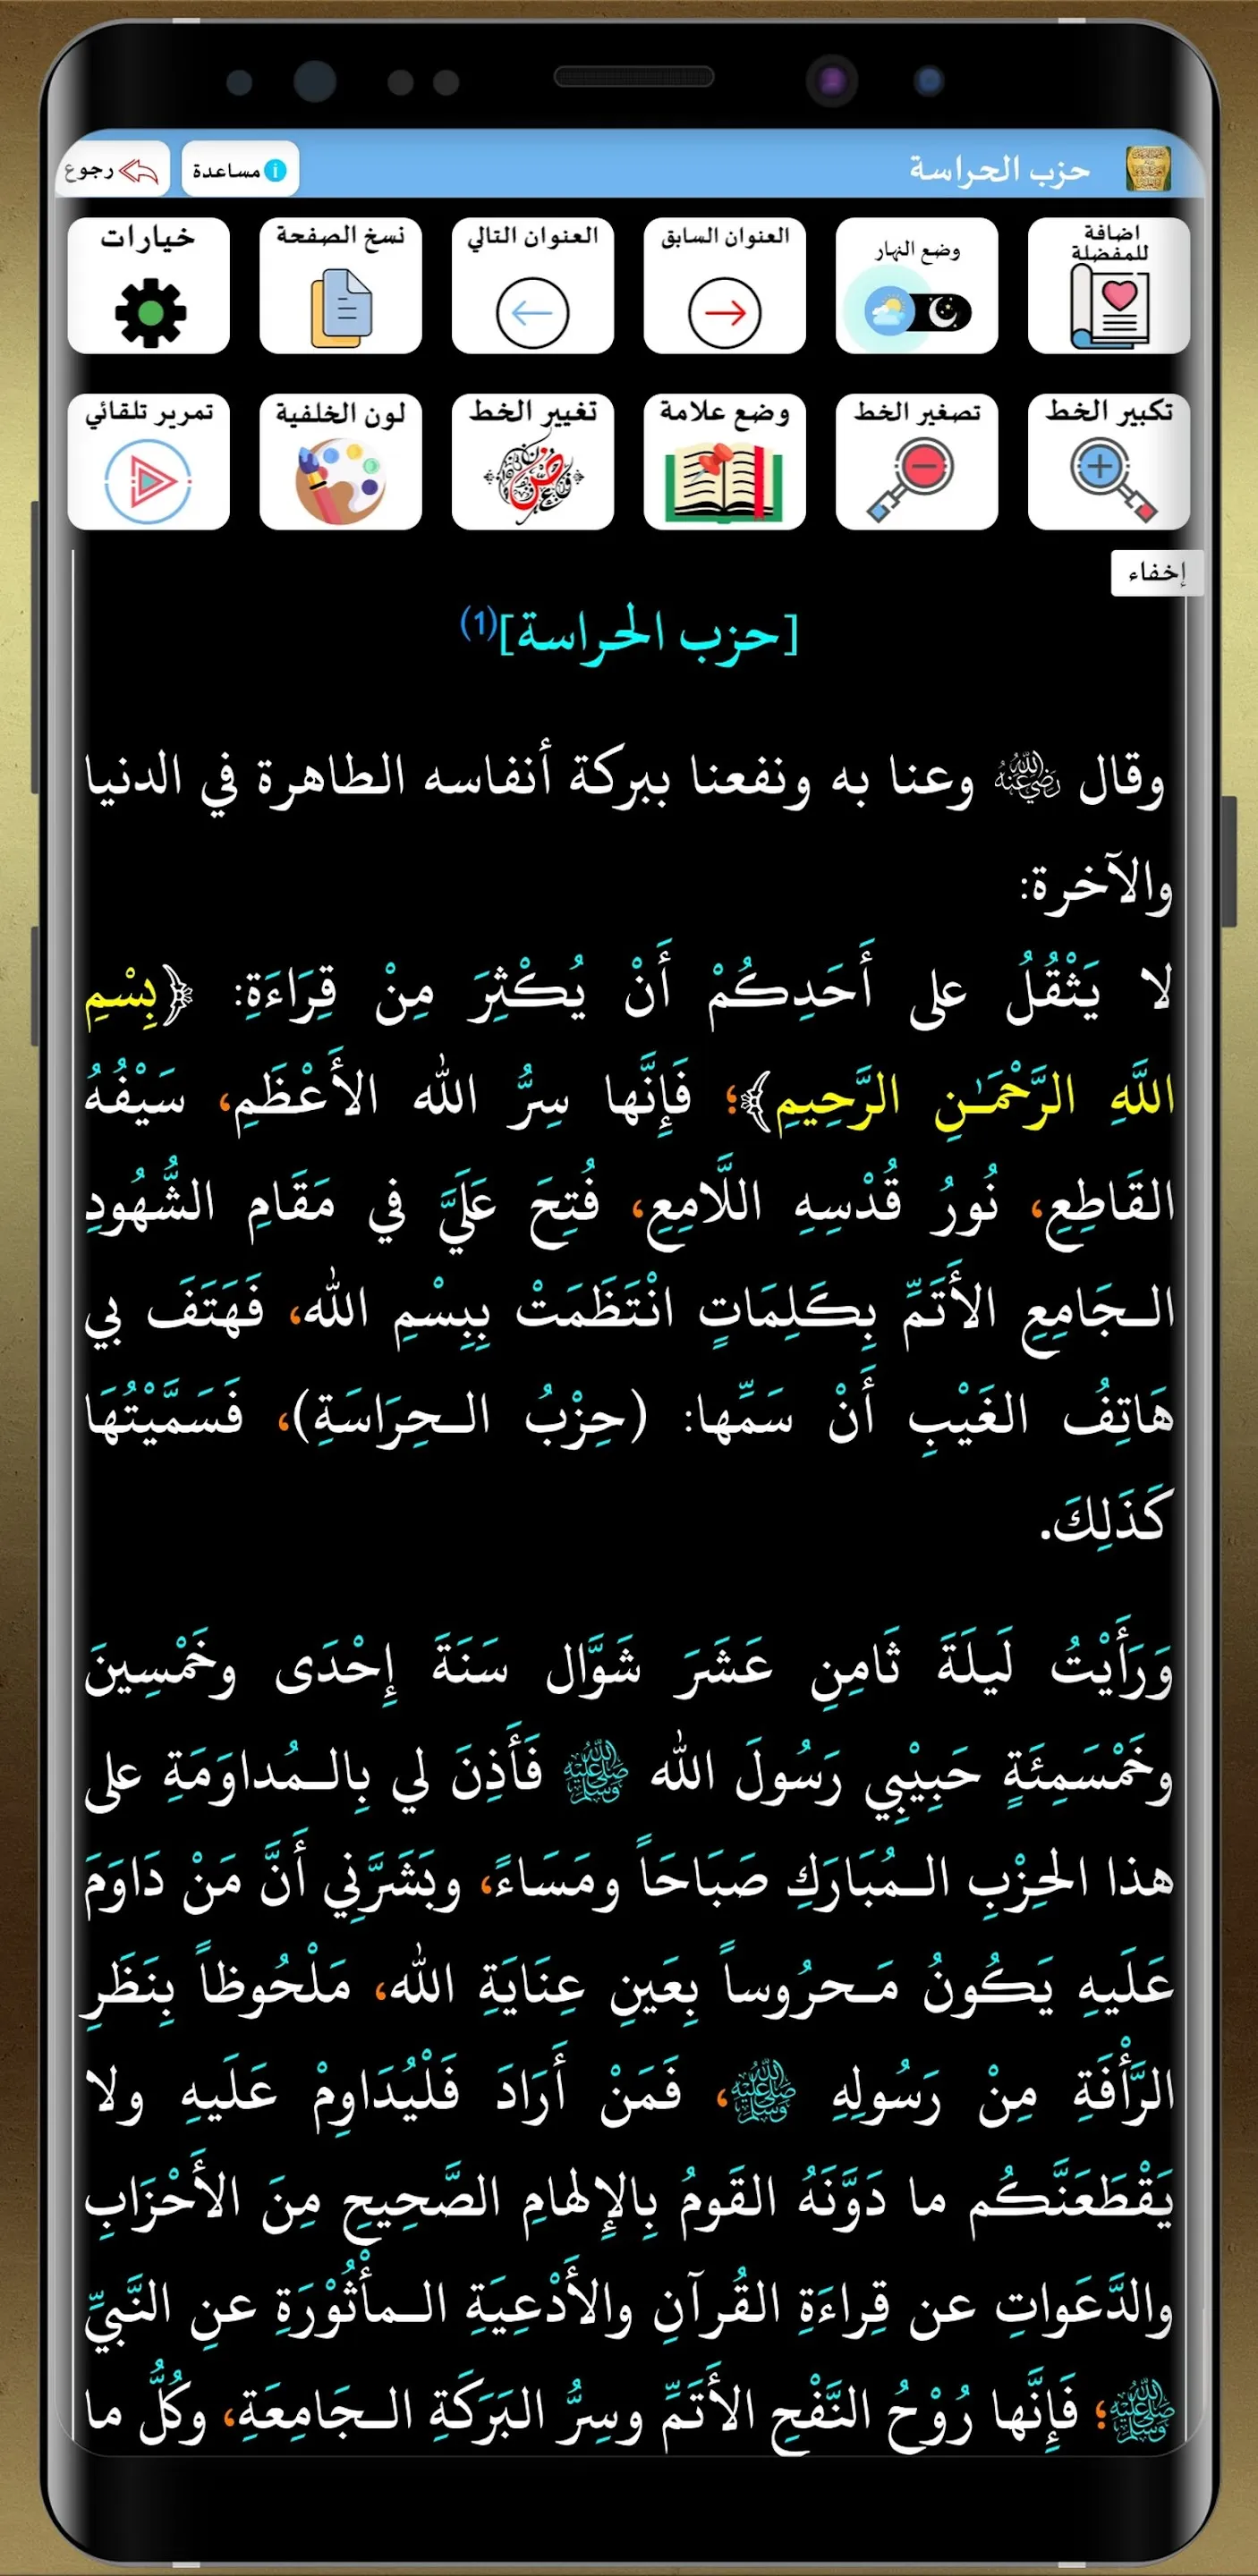 حزب الحراسة
مساعدة
رجوع
اضافة
للمفضلة
وضع النهار
العنوان السابق
العنوان التالي
نسخ الصفحة
خيارات
تكبير الخط
تصغير الخط
وضع علامة
تغيير الخط
لون الخلفية
تمرير تلقائي
إخفاء
[حزب الحراسة](1)
وقال ﵁ وعنا به ونفعنا ببركة أنفاسه الطاهرة في الدنيا
والآخرة:
لا يَثْقُلُ على أَحَدِكُمْ أَنْ يُكْثِرَ مِنْ قِرَاءَةِ: ﴿بِسْمِ
اللَّهِ الرَّحْمَٰنِ الرَّحِيمِ﴾؛ فَإِنَّها سِرُّ الله الأَعْظَمِ، سَيْفُهُ
القَاطِعِ، نُورُ قُدْسِهِ اللَّامِعِ، فُتِحَ عَلَيَّ في مَقَامِ الشُّهُودِ
الـجَامِعِ الأَتَمِّ بِكَلِمَاتٍ انْتَظَمَتْ بِبِسْمِ الله، فَهَتَفَ بي
هَاتِفُ الغَيْبِ أَنْ سَمِّها: (حِزْبُ الـحِرَاسَةِ)، فَسَمَّيْتُهَا
كَذَلِكَ.
وَرَأَيْتُ لَيلَةَ ثَامِنِ عَشَرَ شَوَّال سَنَةَ إِحْدَى وخَمْسِينَ
وخَمْسَمِئَةٍ حَبِيْبِي رَسُولَ الله ﷺ فَأَذِنَ لي بِالـمُداوَمَةِ على
هذا الحِزْبِ الـمُبَارَكِ صَبَاحَاً ومَسَاءً، وبَشَرَّنِي أَنَّ مَنْ دَاوَمَ
عَلَيهِ يَكُونُ مَـحرُوساً بِعَينِ عِنَايَةِ الله، مَلْحُوظاً بِنَظَرِ
الرَّأْفَةِ مِنْ رَسُولِهِ ﷺ، فَمَنْ أَرَادَ فَلْيُدَاوِمْ عَلَيهِ ولا
يَقْطَعَنَّكُم ما دَوَّنَهُ القَومُ بِالإِلهامِ الصَّحِيحِ مِنَ الأَحْزَابِ
والدَّعَواتِ عن قِراءَةِ القُرآنِ والأَدْعِيَةِ الـمأْثُوْرَةِ عنِ النَّبِيِّ
ﷺ؛ فَإِنَّها رُوْحُ النَّفْحِ الأَتَمِّ وسِرُّ البَرَكَةِ الـجَامِعَةِ، وكُلُّ ما